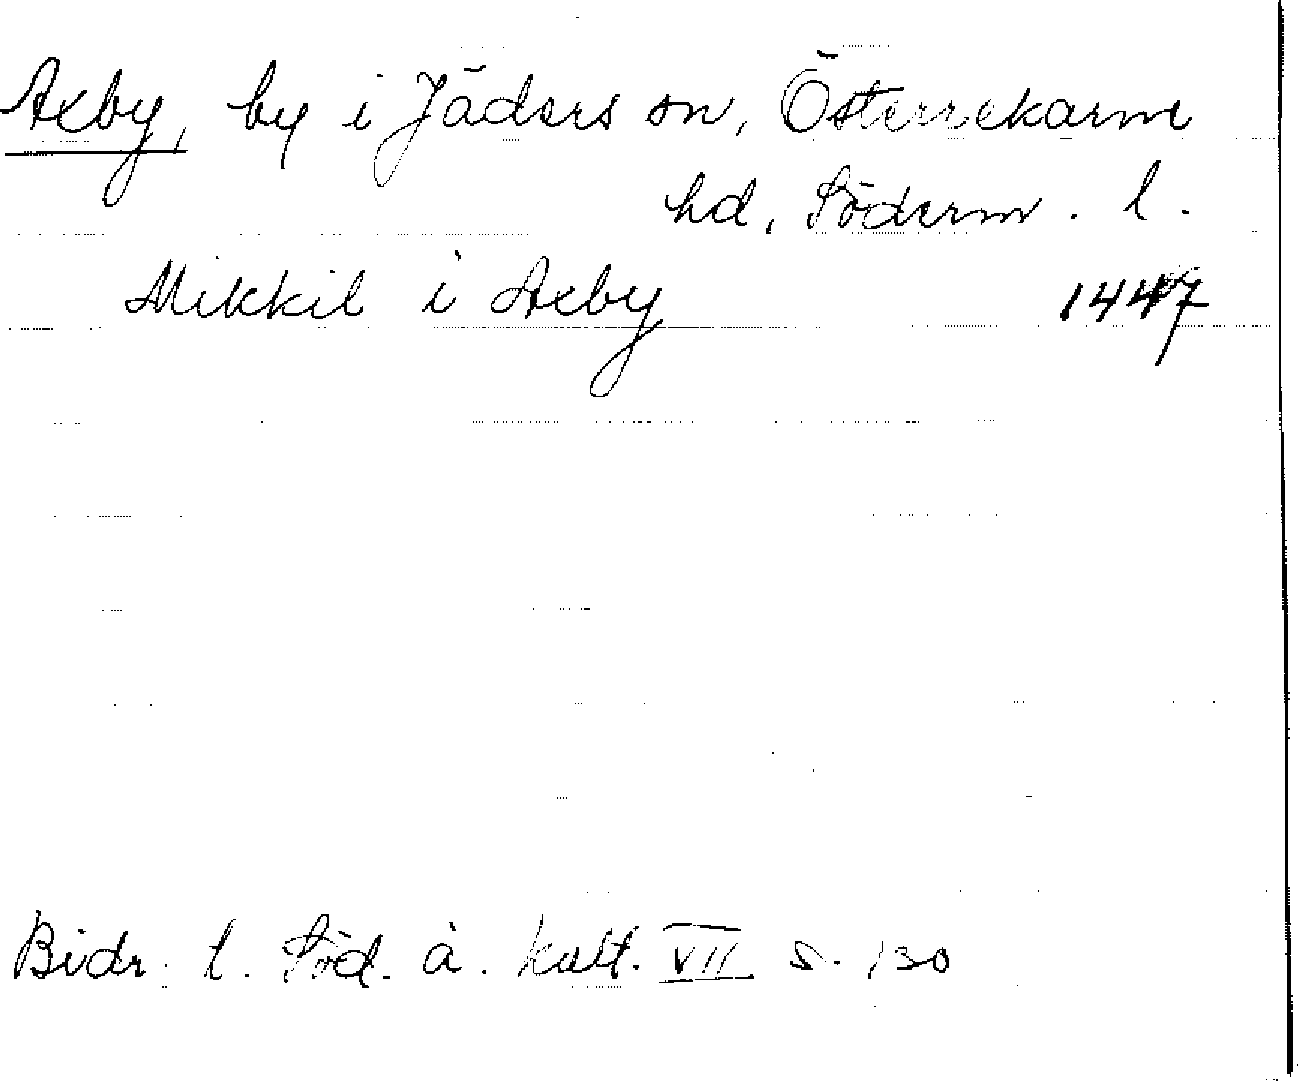 Axby, by i Jäders sn, Österrekarne
hd, Söderm. l.
Mikkil i Axby 1447
Bidr. t. Söd. ä. kult. VII s. 130